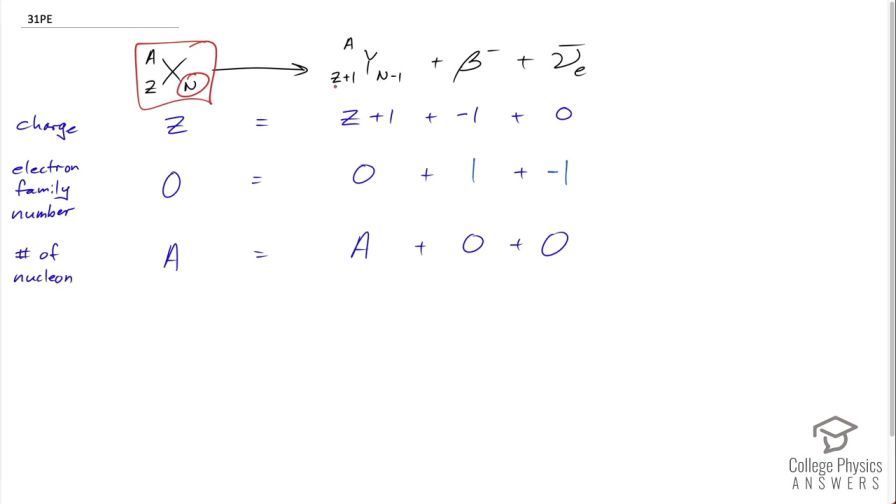 31PE
A Z X N → A Z+1 Y N-1 + β⁻ + ν̄e
charge Z = Z+1 + -1 + 0
electron family number 0 = 0 + 1 + -1
# of nucleon A = A + 0 + 0
College Physics
ANSWERS